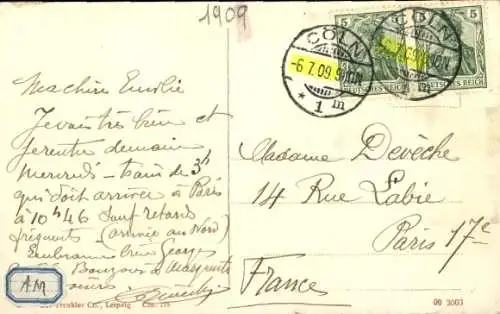 1909
5
5
CÖLN
-6.7.09.9-10N.
* 1 m
DEUTSCHES REICH
DEUTSCHES REICH
Ma chère Emilie
Je vais très bien et
je rentre demain
mercredi - train de 3h
qui doit arriver à Paris
à 10h46 sauf retards
fréquents (arrivée au Nord)
Embrasse bien Georges
Bonjour à Marguerite
Madame Devèche
14 Rue Labie
Paris 17e
France
AM
Trenkler Co., Leipzig
09 3003